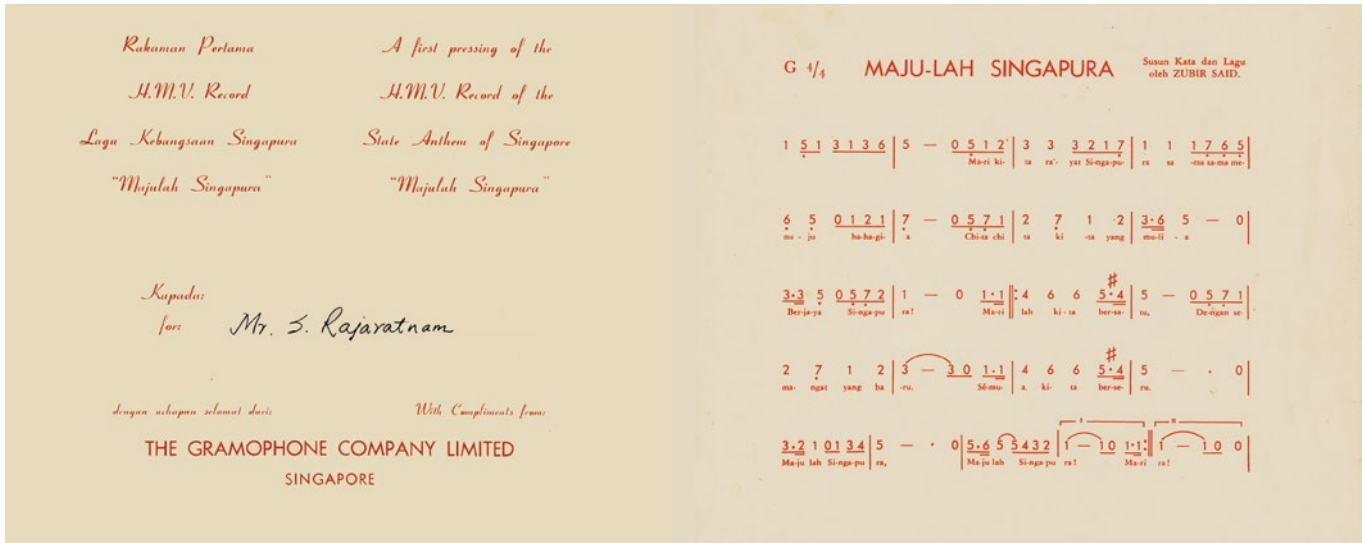 Rakaman Pertama
H.M.V. Record
Lagu Kebangsaan Singapura
"Majulah Singapura"
A first pressing of the
H.M.V. Record of the
State Anthem of Singapore
"Majulah Singapura"
Kapada:
for: Mr. S. Rajaratnam
dengan uchapan selamat dari:
With Compliments from:
THE GRAMOPHONE COMPANY LIMITED
SINGAPORE
G 4/4 MAJU-LAH SINGAPURA
Susun Kata dan Lagu
oleh ZUBIR SAID.
1 5 1 3 1 3 6 | 5 — 0 5 1 2 | 3 3 3 2 1 7 | 1 1 1 7 6 5 |
Ma-ri ki- ta ra'- yat Si-nga-pu- ra sa -ma sa-ma me-
6 5 0 1 2 1 | 7 — 0 5 7 1 | 2 7 1 ·2 | 3·6 5 — 0 |
nu - ju ba-ha-gi- a Chi-ta chi ta ki -ta yang mu-li - a
3·3 5 0 5 7 2 | 1 — 0 1·1 ‖: 4 6 6 5·♯4 | 5 — 0 5 7 1 |
Ber-ja-ya Si-nga-pu ra! Ma-ri lah ki-ta ber-sa- tu, De-ngan se-
2 7 1 2 | 3 — 3 0 1·1 | 4 6 6 5·♯4 | 5 — · 0 |
ma- ngat yang ba -ru. Sĕ-mu- a ki- ta ber-se- ru.
3·2 1 0 1 3 4 | 5 — · 0 | 5·6 5 5 4 3 2 | I 1 — 1 0 1·1 :‖ II 1 — 1 0 0 |
Ma-ju lah Si-nga-pu ra, Ma-ju lah Si-nga-pu ra! Ma-ri ra!